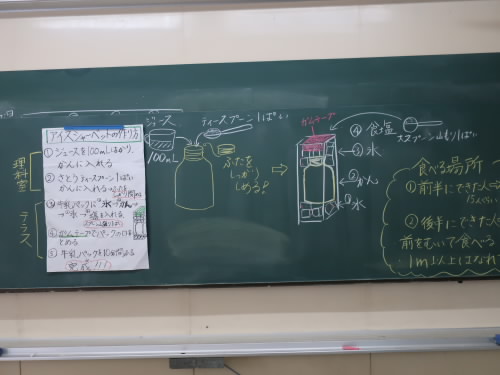 アイスシャーベットの作り方
①ジュースを100mLはかり、
かんに入れる
②さとうティースプーン1ぱい
かんに入れる
③牛乳パックに
→氷→
④ガムテープでパックの口を
とめる
⑤牛乳パックを10分間ふる
理科室
テラス
ジュース
100mL
ティースプーン1ぱい
ふたを
しっかり
しめる
ガムテープ
④食塩
大スプーン山もり1ぱい
③氷
②かん
①氷
食べる場所
①前半にできた人
15人ぐらい
②後半にできた人
前をむいて食べる
1m以上はなれて